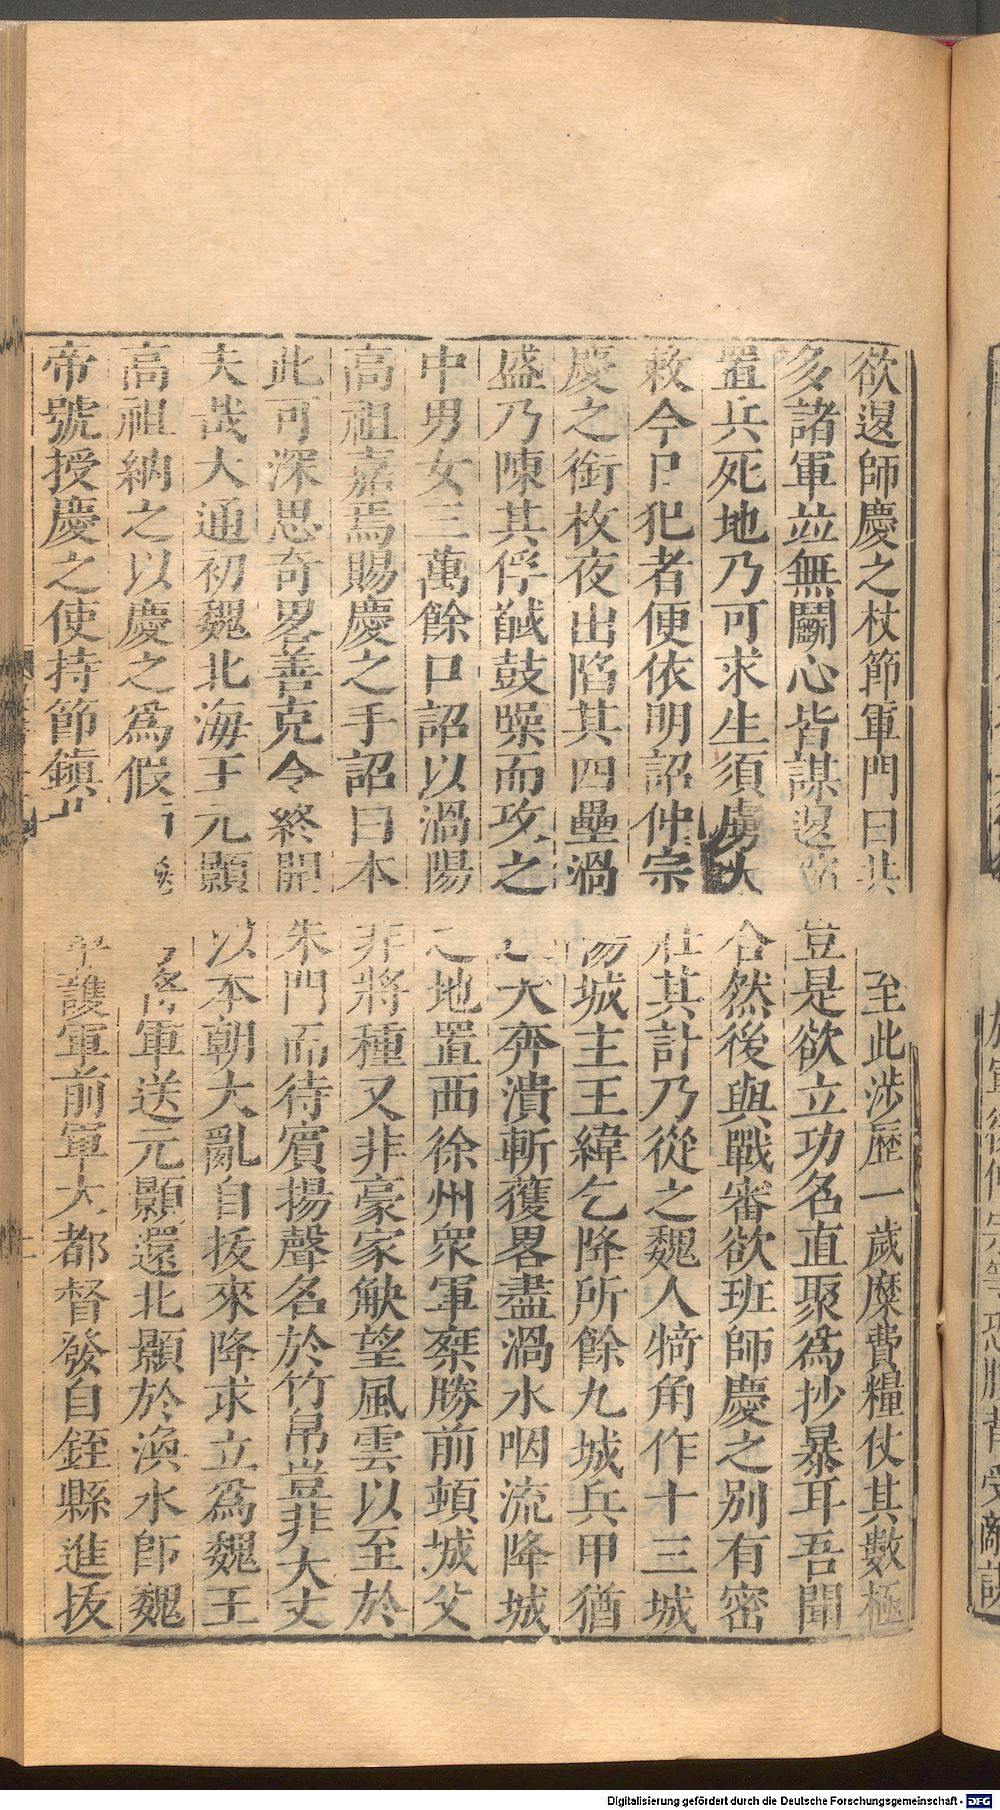 欲退師慶之杖節軍門曰共至此涉歷一歲糜費糧仗其數極
多諸軍並無鬬心皆謀退豈是欲立功名直聚爲抄暴耳吾聞
置兵死地乃可求生須虜大合然後與戰審欲班師慶之別有密
敕今日犯者便依明詔仲宗壯其計乃從之魏人犄角作十三城
慶之銜枚夜出陷其四壘渦陽城主王緯乞降所餘九城兵甲猶
盛乃陳其俘馘鼓噪而攻之大奔潰斬獲畧盡渦水咽流降城
中男女三萬餘口詔以渦陽之地置西徐州衆軍乗勝前頓城父
高祖嘉焉賜慶之手詔曰本非將種又非豪家觖望風雲以至於
此可深思奇畧善克令終開朱門而待賓揚聲名於竹帛豈非大丈
夫哉大通初魏北海王元顥以本朝大亂自拔來降求立爲魏王
高祖納之以慶之爲假節軍送元顥還北顥於渙水卽魏
帝號授慶之使持節鎮護軍前軍大都督發自銍縣進拔
Digitalisierung gefördert durch die Deutsche Forschungsgemeinschaft - DFG